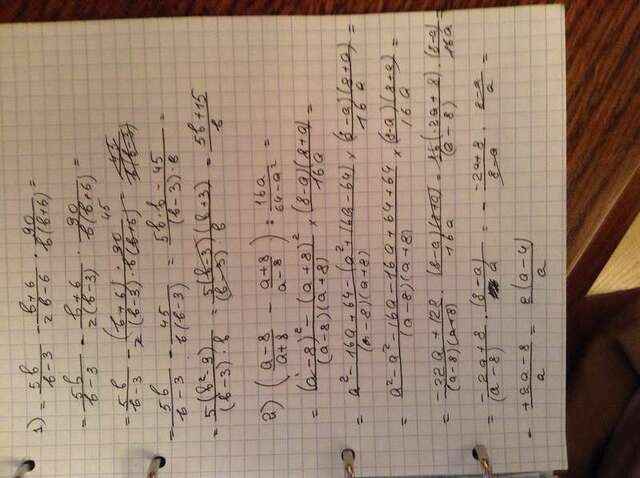 1) = 5b/(b-3) - (b+6)/(2b-6) · 90/(b(b+6)) =
= 5b/(b-3) - (b+6)/(2(b-3)) · 90/(b(b+6)) =
= 5b/(b-3) - (b+6) · 90 45/(2(b-3) · b(b+6)) =
= 5b/(b-3) - 45/(b(b-3)) = (5b·b - 45)/((b-3)·b) =
= 5(b²-9)/((b-3)·b) = 5(b-3)(b+3)/((b-3)·b) = (5b+15)/b
2) ((a-8)/(a+8) - (a+8)/(a-8)) : 16a/(64-a²) =
= ((a-8)² - (a+8)²)/((a-8)(a+8)) × (8-a)(8+a)/16a =
= (a²-16a+64-(a²+16a-64))/((a-8)(a+8)) × (8-a)(8+a)/16a =
= (a²-a²-16a-16a+64+64)/((a-8)(a+8)) × (8-a)(8+a)/16a =
= (-32a+128)/((a-8)(a+8)) · (8-a)(8+a)/16a = 16(-2a+8)/(a-8) · (8-a)/16a =
= (-2a+8)/(a-8) · (8-a)/a = - (-2a+8)/(8-a) · (8-a)/a =
= (+2a-8)/a = 2(a-4)/a